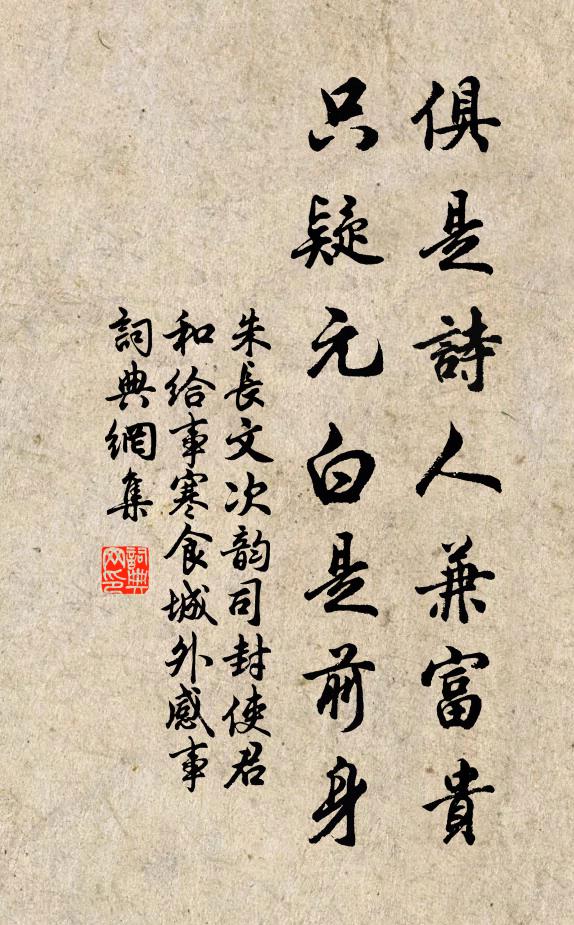 俱是詩人兼富貴
只疑元白是前身
朱長文次韵司封使君
和給事寒食城外感事
詞典網集
詞典网印